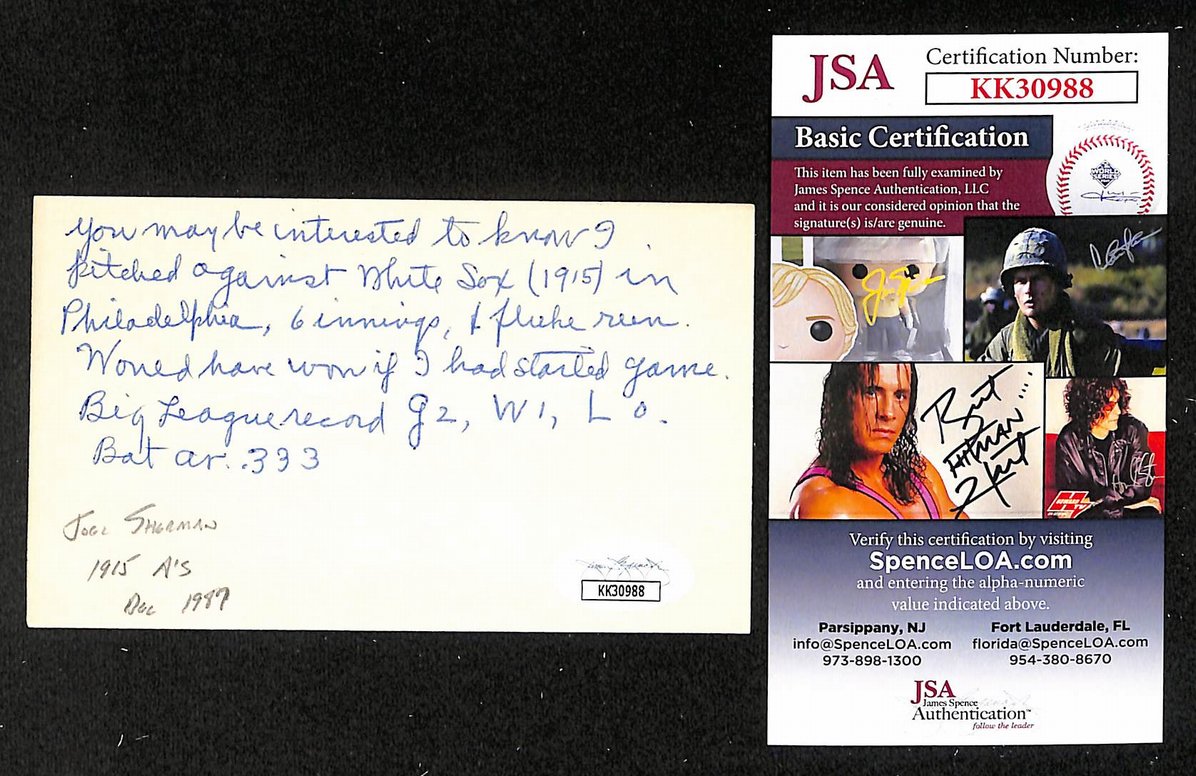 you may be interested to know I
pitched against White Sox (1915) in
Philadelphia, 6 innings, 1 fluke run.
Would have won if I had started game.
Big League record G2, W1, L 0.
Bat av. .333
Joel Sherman
1915 A's
Dec 1987
KK30988
JSA
Certification Number:
KK30988
Basic Certification
This item has been fully examined by
James Spence Authentication, LLC
and it is our considered opinion that the
signature(s) is/are genuine.
WORLD
SERIES
Bret
HITMAN
Hart
Verify this certification by visiting
SpenceLOA.com
and entering the alpha-numeric
value indicated above.
Parsippany, NJ
info@SpenceLOA.com
973-898-1300
Fort Lauderdale, FL
florida@SpenceLOA.com
954-380-8670
JSA
James Spence
Authentication™
follow the leader